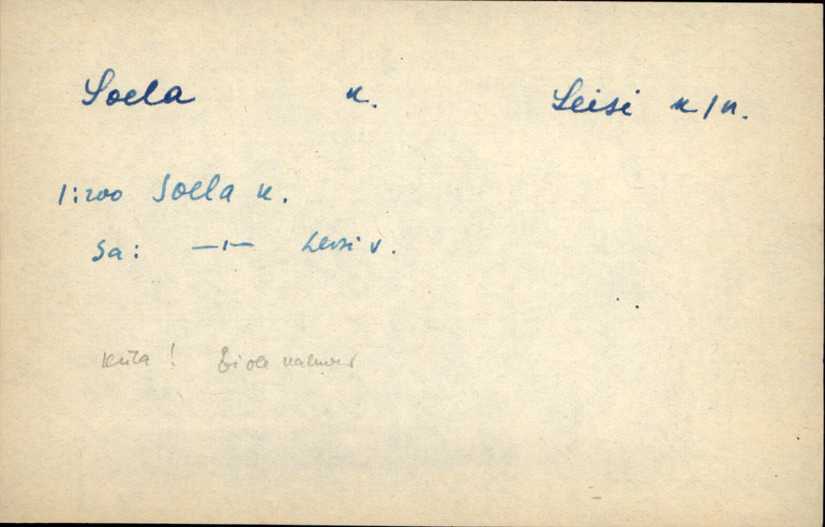 Soela k. Leisi k/n.
1:200 Soela k.
Sa: —"— Leisi v.
Küla! Ei ole